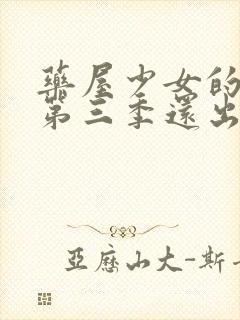 藥屋少女的
第三季還出
亞歷山大-斯